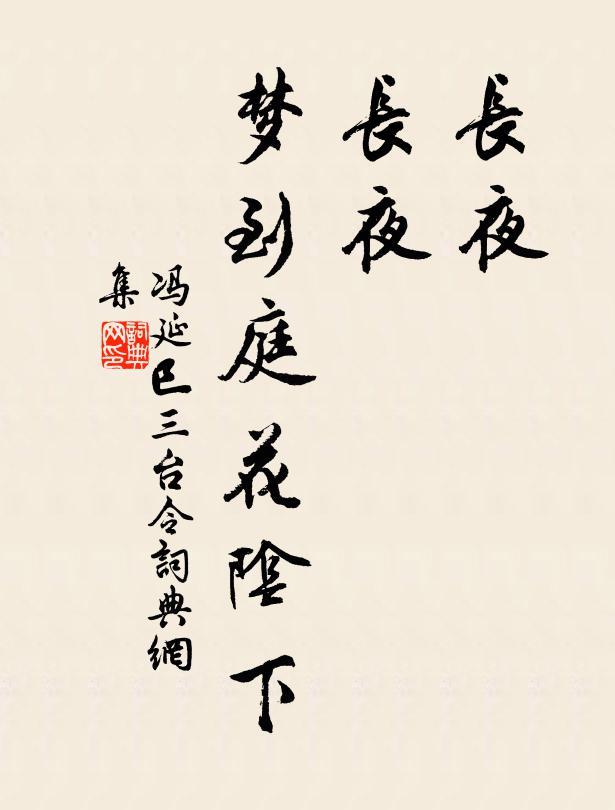 長夜
長夜
梦到庭花陰下
冯延巳三台令詞典網
集
詞典
网印